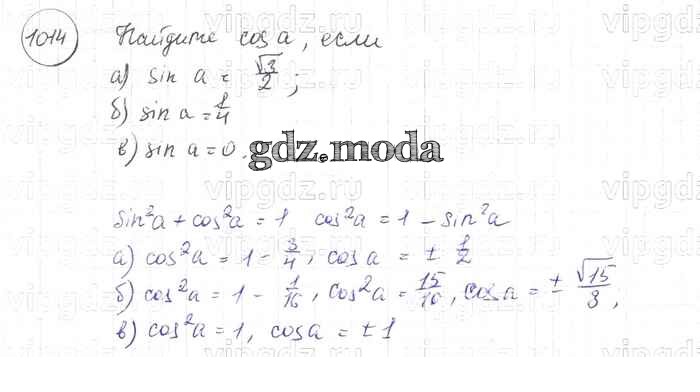 1014 Найдите cos a, если
а) sin a = √3/2;
б) sin a = 1/4
в) sin a = 0.
gdz.moda
sin²a + cos²a = 1 cos²a = 1 - sin²a
а) cos²a = 1 - 3/4, cos a = ± 1/2
б) cos²a = 1 - 1/16, cos²a = 15/10, cos a = ± √15/3,
в) cos²a = 1, cos a = ± 1
vipgdz.ru